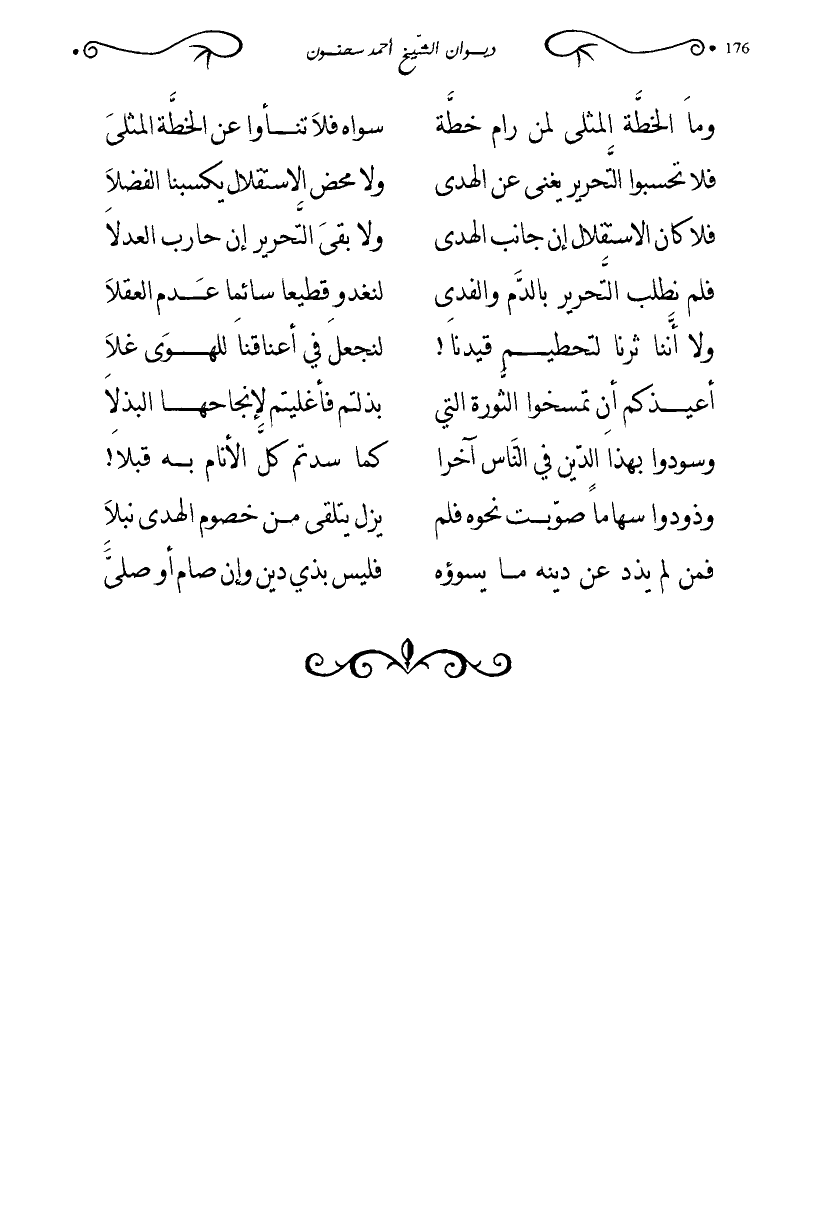 176 ديـوان الشّيخ أحمد سحنـون
وما الخطَّة المثلى لمن رام خطَّة سواه فلا تنـأوا عن الخطَّة المثلىَ
فلا تحسبوا التَّحرير يغنى عن الهدى ولا محض الاستقلال يكسبنا الفضلاَ
فلا كان الاستقلال إن جانب الهدى ولا بقىَ التَّحرير إن حارب العدلاَ
فلم نطلب التَّحرير بالدَّم والفدى لنغدو قطيعا سائما عَـدم العقلاَ
ولا أنَّنا ثرنا لتحطيـم قيدنا ! لنجعل في أعناقنا للهـوَى غلاَ
أعيـذكم أن تمسخوا الثَّورة التي بذلتم فأغليتم لإنجاحهـا البذلاَ
وسودوا بهذا الدِّين في النَّاس آخرا كما سدتم كلَّ الأنام بـه قبلا!
وذودوا سهاما صوِّبـت نحوه فلم يزل يتلقى مـن خصوم الهدى نبلاَ
فمن لم يذد عن دينه مـا يسوؤه فليس بذي دين وإن صام أو صلىَّ